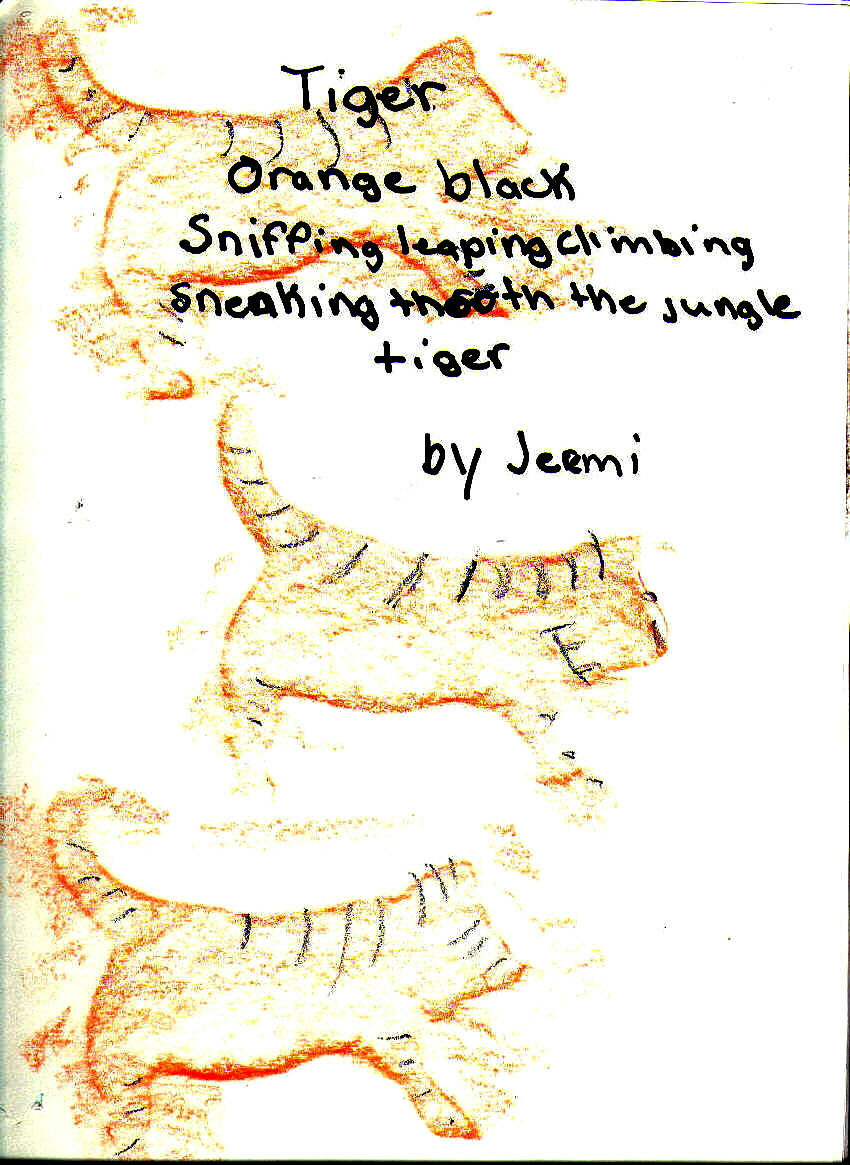 Tiger
Orange black
Sniffing leaping climbing
Sneaking the jungle
tiger
by Jeemi